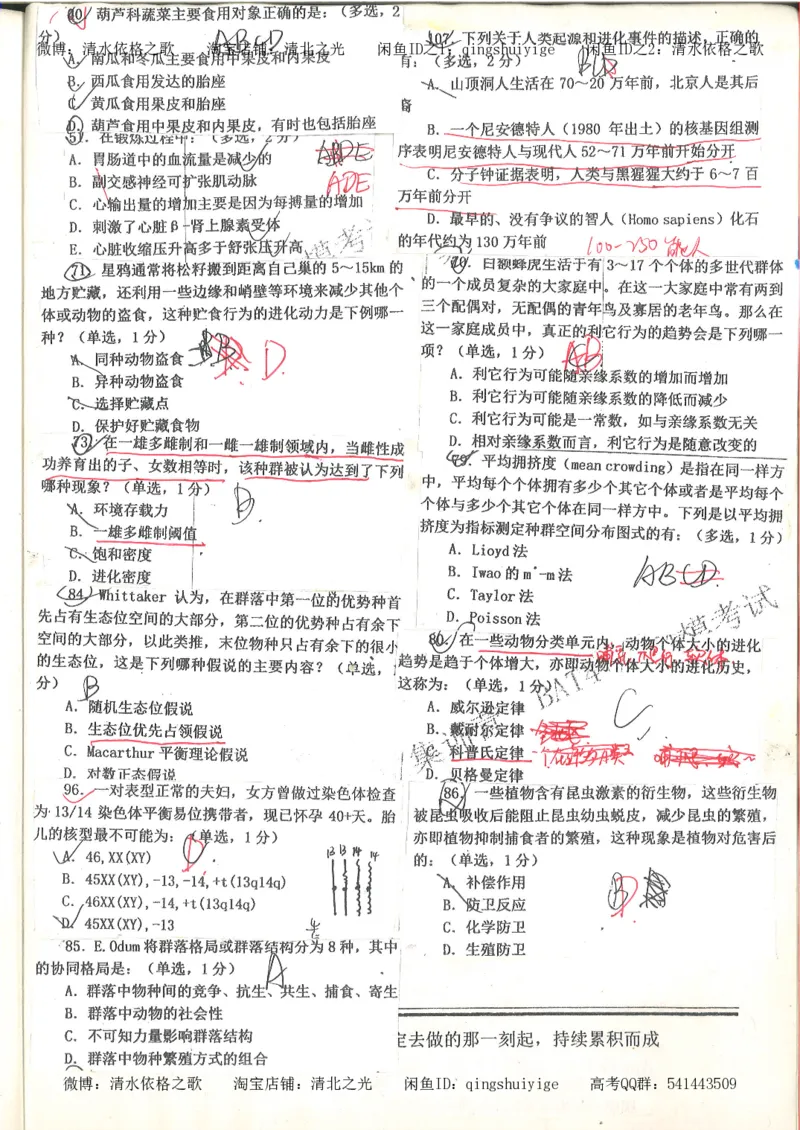 60. 葫芦科蔬菜主要食用对象正确的是：（多选，2
分）
ABCD
微博：清水依格之歌 淘宝店铺：清北之光 闲鱼ID之1：qingshuiyige 闲鱼ID之2：清水依格之歌
A. 南瓜和冬瓜主要食用中果皮和内果皮
B. 西瓜食用发达的胎座
C. 黄瓜食用果皮和胎座
D. 葫芦食用中果皮和内果皮，有时也包括胎座
51. 在锻炼过程中：（多选，2 分）
A. 胃肠道中的血流量是减少的
B. 副交感神经可扩张肌动脉
ADE
C. 心输出量的增加主要是因为每搏量的增加
D. 刺激了心脏β-肾上腺素受体
E. 心脏收缩压升高多于舒张压升高
71. 星鸦通常将松籽搬到距离自己巢的 5～15km 的
地方贮藏，还利用一些边缘和峭壁等环境来减少其他个
体或动物的盗食，这种贮食行为的进化动力是下例哪一
种？（单选，1 分）
A. 同种动物盗食
D.
B. 异种动物盗食
C. 选择贮藏点
D. 保护好贮藏食物
73. 在一雄多雌制和一雌一雄制领域内，当雌性成
功养育出的子、女数相等时，该种群被认为达到了下列
哪种现象？（单选，1 分）
B.
A. 环境存载力
B. 一雄多雌制阈值
C. 饱和密度
D. 进化密度
84. Whittaker 认为，在群落中第一位的优势种首
先占有生态位空间的大部分，第二位的优势种占有余下
空间的大部分，以此类推，末位物种只占有余下的很小
的生态位，这是下列哪种假说的主要内容？（单选，1
分）
B
A. 随机生态位假说
B. 生态位优先占领假说
C. Macarthur 平衡理论假说
D. 对数正态假说
96. 一对表型正常的夫妇，女方曾做过染色体检查
为 13/14 染色体平衡易位携带者，现已怀孕 40+天。胎
儿的核型最不可能为：（单选，1 分）
A. 46,XX(XY)
D
13 13 14 14
B. 45XX(XY),-13,-14,+t(13q14q)
C. 46XX(XY),-14,+t(13q14q)
D. 45XX(XY),-13
85. E.Odum 将群落格局或群落结构分为 8 种，其中
的协同格局是：（单选，1 分）
A
A. 群落中物种间的竞争、抗生、共生、捕食、寄生
B. 群落中动物的社会性
C. 不可知力量影响群落结构
D. 群落中物种繁殖方式的组合
107. 下列关于人类起源和进化事件的描述，正确的
有：（多选，2 分）
A. 山顶洞人生活在 70～20 万年前，北京人是其后
裔
B. 一个尼安德特人（1980 年出土）的核基因组测
序表明尼安德特人与现代人 52～71 万年前开始分开
C. 分子钟证据表明，人类与黑猩猩大约于 6～7 百
万年前分开
D. 最早的、没有争议的智人（Homo sapiens）化石
的年代约为 130 万年前
79. 白额蜂虎生活于有 3～17 个个体的多世代群体
的一个成员复杂的大家庭中。在这一大家庭中常有两到
三个配偶对，无配偶的青年鸟及寡居的老年鸟。那么在
这一家庭成员中，真正的利它行为的趋势会是下列哪一
项？（单选，1 分）
A. 利它行为可能随亲缘系数的增加而增加
B. 利它行为可能随亲缘系数的降低而减少
C. 利它行为可能是一常数，如与亲缘系数无关
D. 相对亲缘系数而言，利它行为是随意改变的
平均拥挤度（mean crowding）是指在同一样方
中，平均每个个体拥有多少个其它个体或者是平均每个
个体与多少个其它个体在同一样方中。下列是以平均拥
挤度为指标测定种群空间分布图式的有：（多选，1 分）
A. Lioyd 法
B. Iwao 的 m*-m 法
ABCD
C. Taylor 法
D. Poisson 法
80. 在一些动物分类单元内，动物个体大小的进化
趋势是趋于个体增大，亦即动物个体大小的进化历史，
这称为：（单选，1 分）
C
A. 威尔逊定律
B. 戴耐尔定律
C. 科普氏定律
D. 贝格曼定律
86. 一些植物含有昆虫激素的衍生物，这些衍生物
被昆虫吸收后能阻止昆虫幼虫蜕皮，减少昆虫的繁殖，
亦即植物抑制捕食者的繁殖，这种现象是植物对危害后
的：（单选，1 分）
A. 补偿作用
B. 防卫反应
D
C. 化学防卫
D. 生殖防卫
定去做的那一刻起，持续累积而成
微博：清水依格之歌 淘宝店铺：清北之光 闲鱼ID：qingshuiyige 高考QQ群：541443509